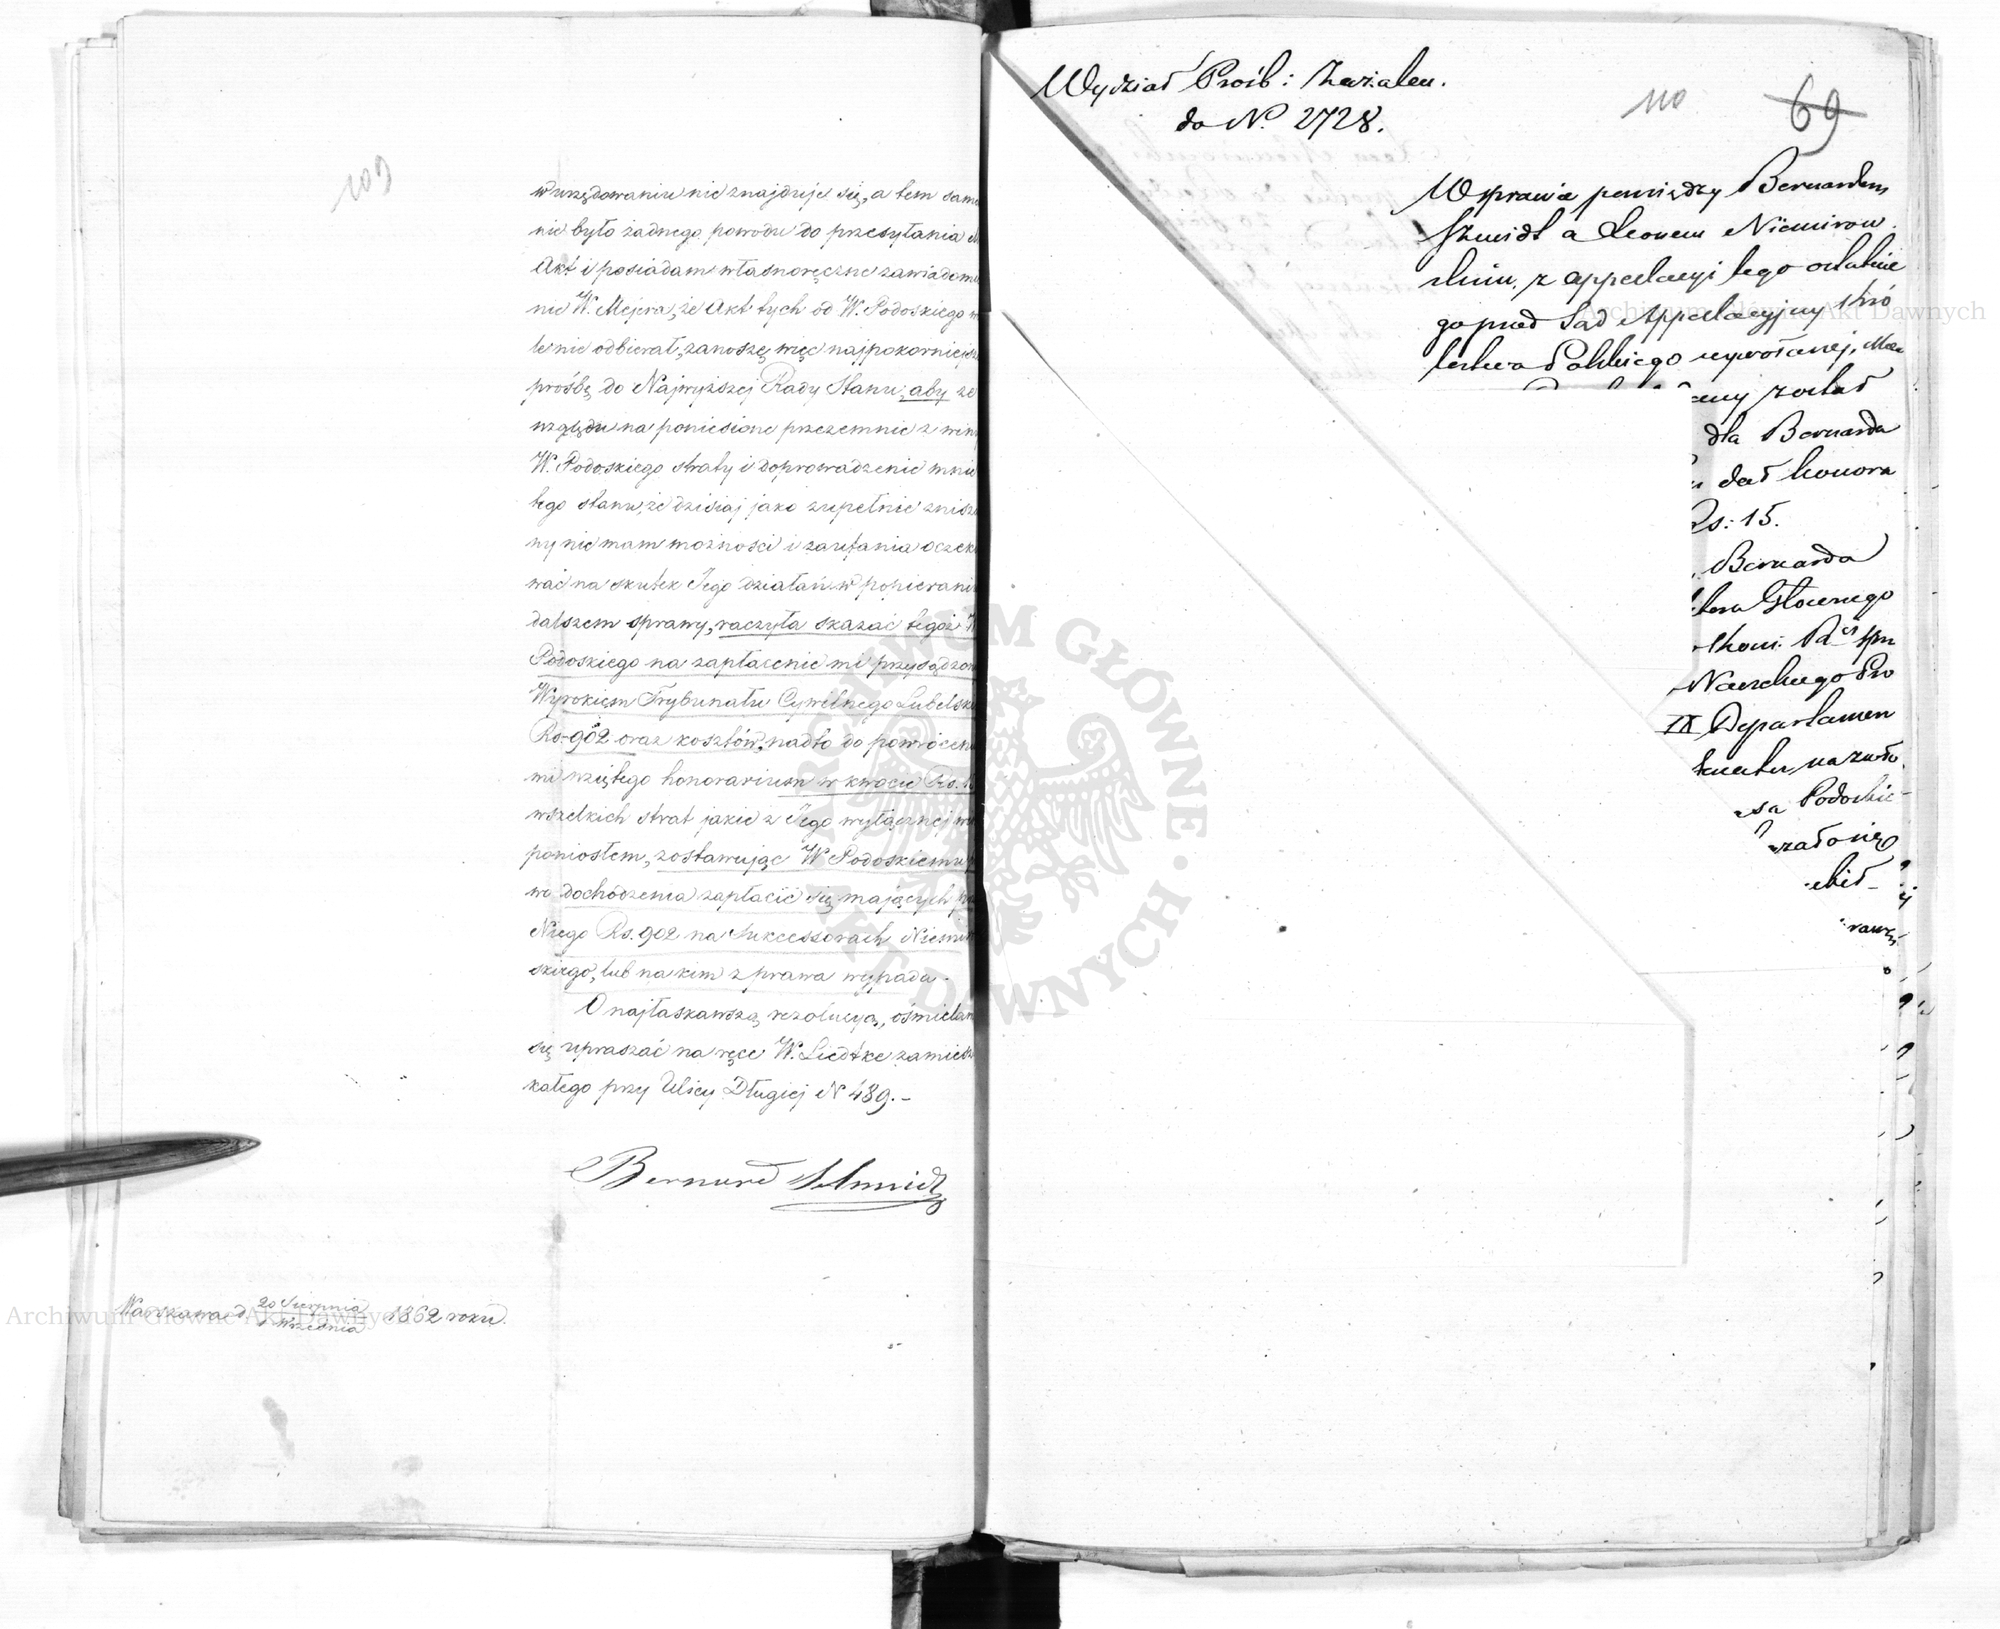 109
w urzędowaniu nie znajduje się, a tem samo
nie było żadnego powodu do przesyłania
Akt i posiadam własnoręczne zawiadomie
nie W. Mejera, że Akt tych od W. Podoskiego
nie odbierał, zanoszę więc najpokorniejszą
prośbę do Najwyższej Rady Stanu, aby ze
względu na poniesione przezemnie z winy
W. Podoskiego straty i doprowadzenie mnie
tego stanu, że dzisiaj jako zupełnie znisz
ny nie mam możności i zaufania oczeki
wać na skutek Jego działań w popieraniu
dalszem sprawy, raczyła skazać tegoż W
Podoskiego na zapłacenie mi przysądzon
Wyrokiem Trybunału Cywilnego Lubelski
Rs. 902 oraz kosztów, nadto do powróceni
mi wziętego honorarium w kwocie Rs. 1
wszelkich strat jakie z Jego wyłącznej wi
poniosłem, zostawując W Podoskiemu p
wo dochodzenia zapłacić się mających prz
Niego Rs. 902 na Sukcessorach Niemir
skiego, lub na kim z prawa wypada.
O najłaskawszą rezolucyą, ośmielam
się upraszać na ręce W. Liedtke zamiesz
kałego przy Ulicy Długiej N 489.-
Bernard Schmidt
Warszawa d. 20 Sierpnia 1 Września 1862 roku.
Archiwum Główne Akt Dawnych
Wydział Próśb i Zażaleń.
do N. 2728.
110
69
W sprawie pomiędzy Bernardem
Szmidt a Leonem Niemirow
skim, z appellacyi tego ostatnie
go przed Sąd Appellacyjny Kró
lestwa Polskiego wywołanej, Me
any został
dla Bernarda
dał honora
Rs: 15.
Bernarda
Głównego
Naszelnego Pro
IX Departamen
Senatu, na
Podoskie
założnię
ARCHIWUM GŁÓWNE AKT DAWNYCH
Archiwum Główne Akt Dawnych